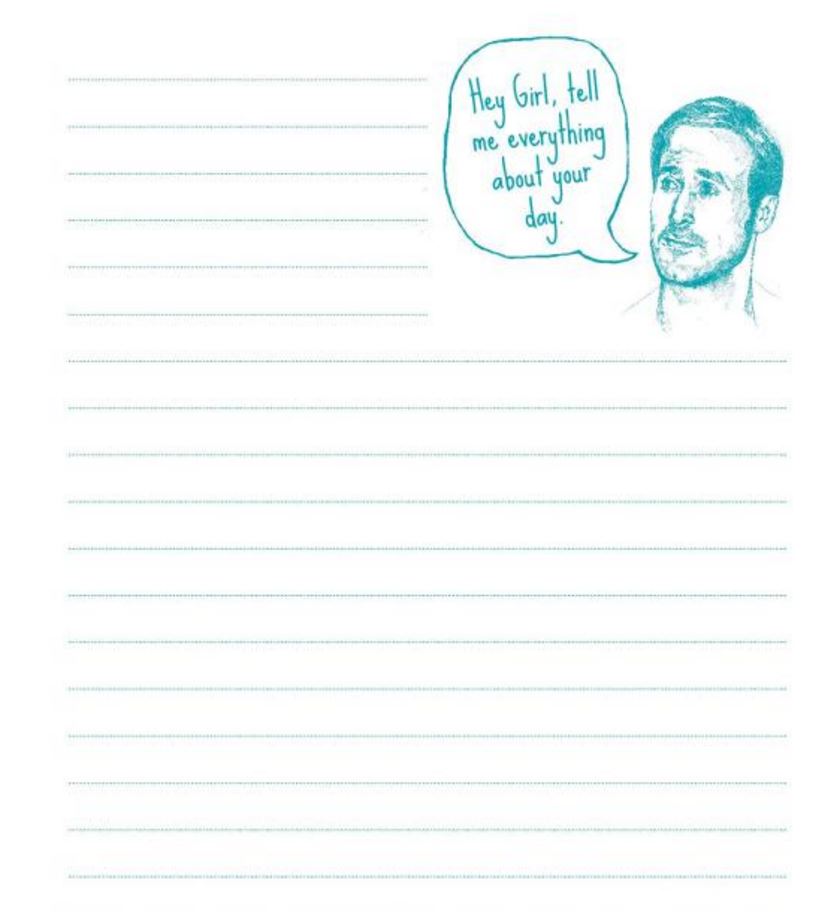 Hey Girl, tell
me everything
about your
day.